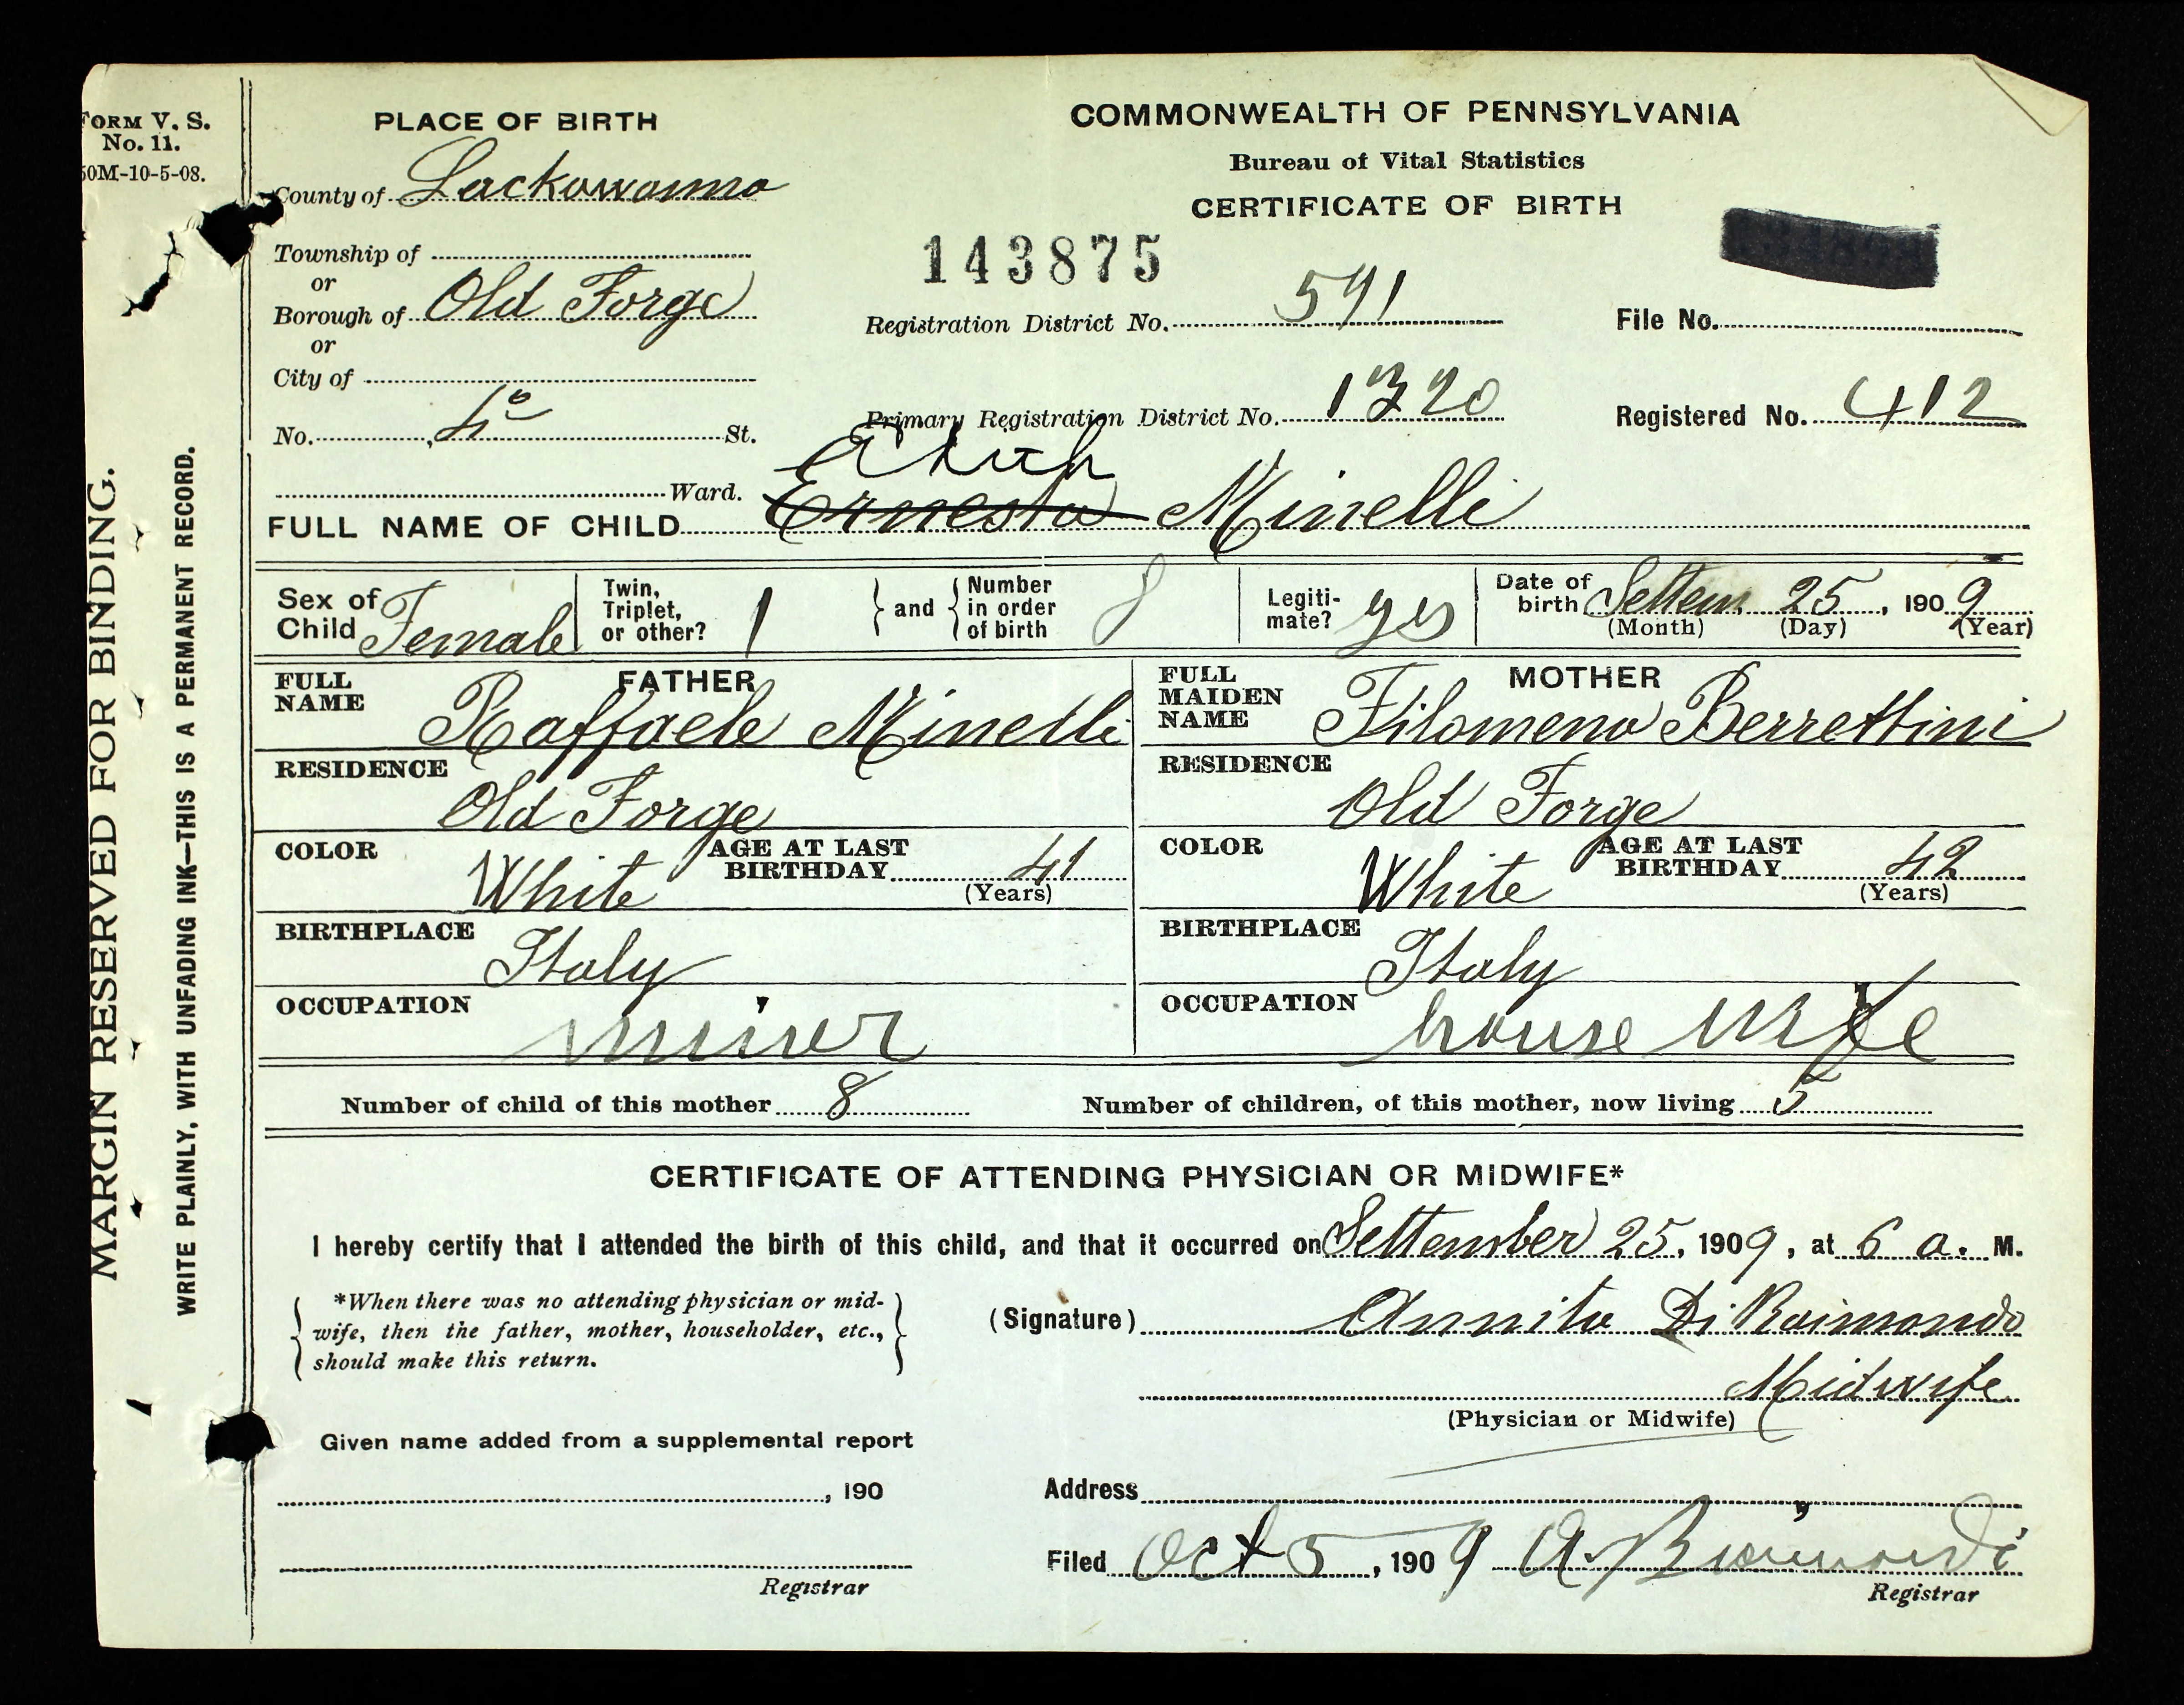 FORM V. S.
No. 11.
50M-10-5-08.
MARGIN RESERVED FOR BINDING.
WRITE PLAINLY, WITH UNFADING INK—THIS IS A PERMANENT RECORD.
PLACE OF BIRTH
County of Lackawanna
Township of
or
Borough of Old Forge
or
City of
No. St.
Ward.
COMMONWEALTH OF PENNSYLVANIA
Bureau of Vital Statistics
CERTIFICATE OF BIRTH
143875
Registration District No. 591
File No.
Primary Registration District No. 1320
Registered No. 412
FULL NAME OF CHILD Ernesta Minelli
Sex of Child Female
Twin, Triplet, or other? 1
and Number in order of birth 8
Legitimate? yes
Date of birth Settem 25, 1909
(Month) (Day) (Year)
FATHER
FULL NAME Raffaele Minelli
RESIDENCE Old Forge
COLOR White AGE AT LAST BIRTHDAY 41
(Years)
BIRTHPLACE Italy
OCCUPATION miner
MOTHER
FULL MAIDEN NAME Filomena Berrettini
RESIDENCE Old Forge
COLOR White AGE AT LAST BIRTHDAY 42
(Years)
BIRTHPLACE Italy
OCCUPATION house wife
Number of child of this mother 8 Number of children, of this mother, now living 5
CERTIFICATE OF ATTENDING PHYSICIAN OR MIDWIFE*
I hereby certify that I attended the birth of this child, and that it occurred on Settember 25, 1909, at 6 a. M.
*When there was no attending physician or mid-
wife, then the father, mother, householder, etc.,
should make this return.
(Signature) Annita Di Raimondo
Midwife
(Physician or Midwife)
Given name added from a supplemental report
, 190
Registrar
Address
Filed Oct 5, 1909 A.
Registrar